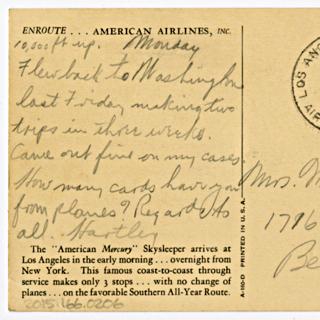 ENROUTE . . . AMERICAN AIRLINES, INC.
10,000 ft up. Monday
Flew back to Washington
last Friday making two
trips in three weeks.
Came out fine on my cases.
How many cards have you
from planes? Regards to
all. Hartley
The "American Mercury" Skysleeper arrives at
Los Angeles in the early morning . . . overnight from
New York. This famous coast-to-coast through
service makes only 3 stops . . . with no change of
planes . . . on the favorable Southern All-Year Route.
2015.166.0206
A-110-D PRINTED IN U. S. A.
LOS ANG
AIR
Mrs. M
1716
Be